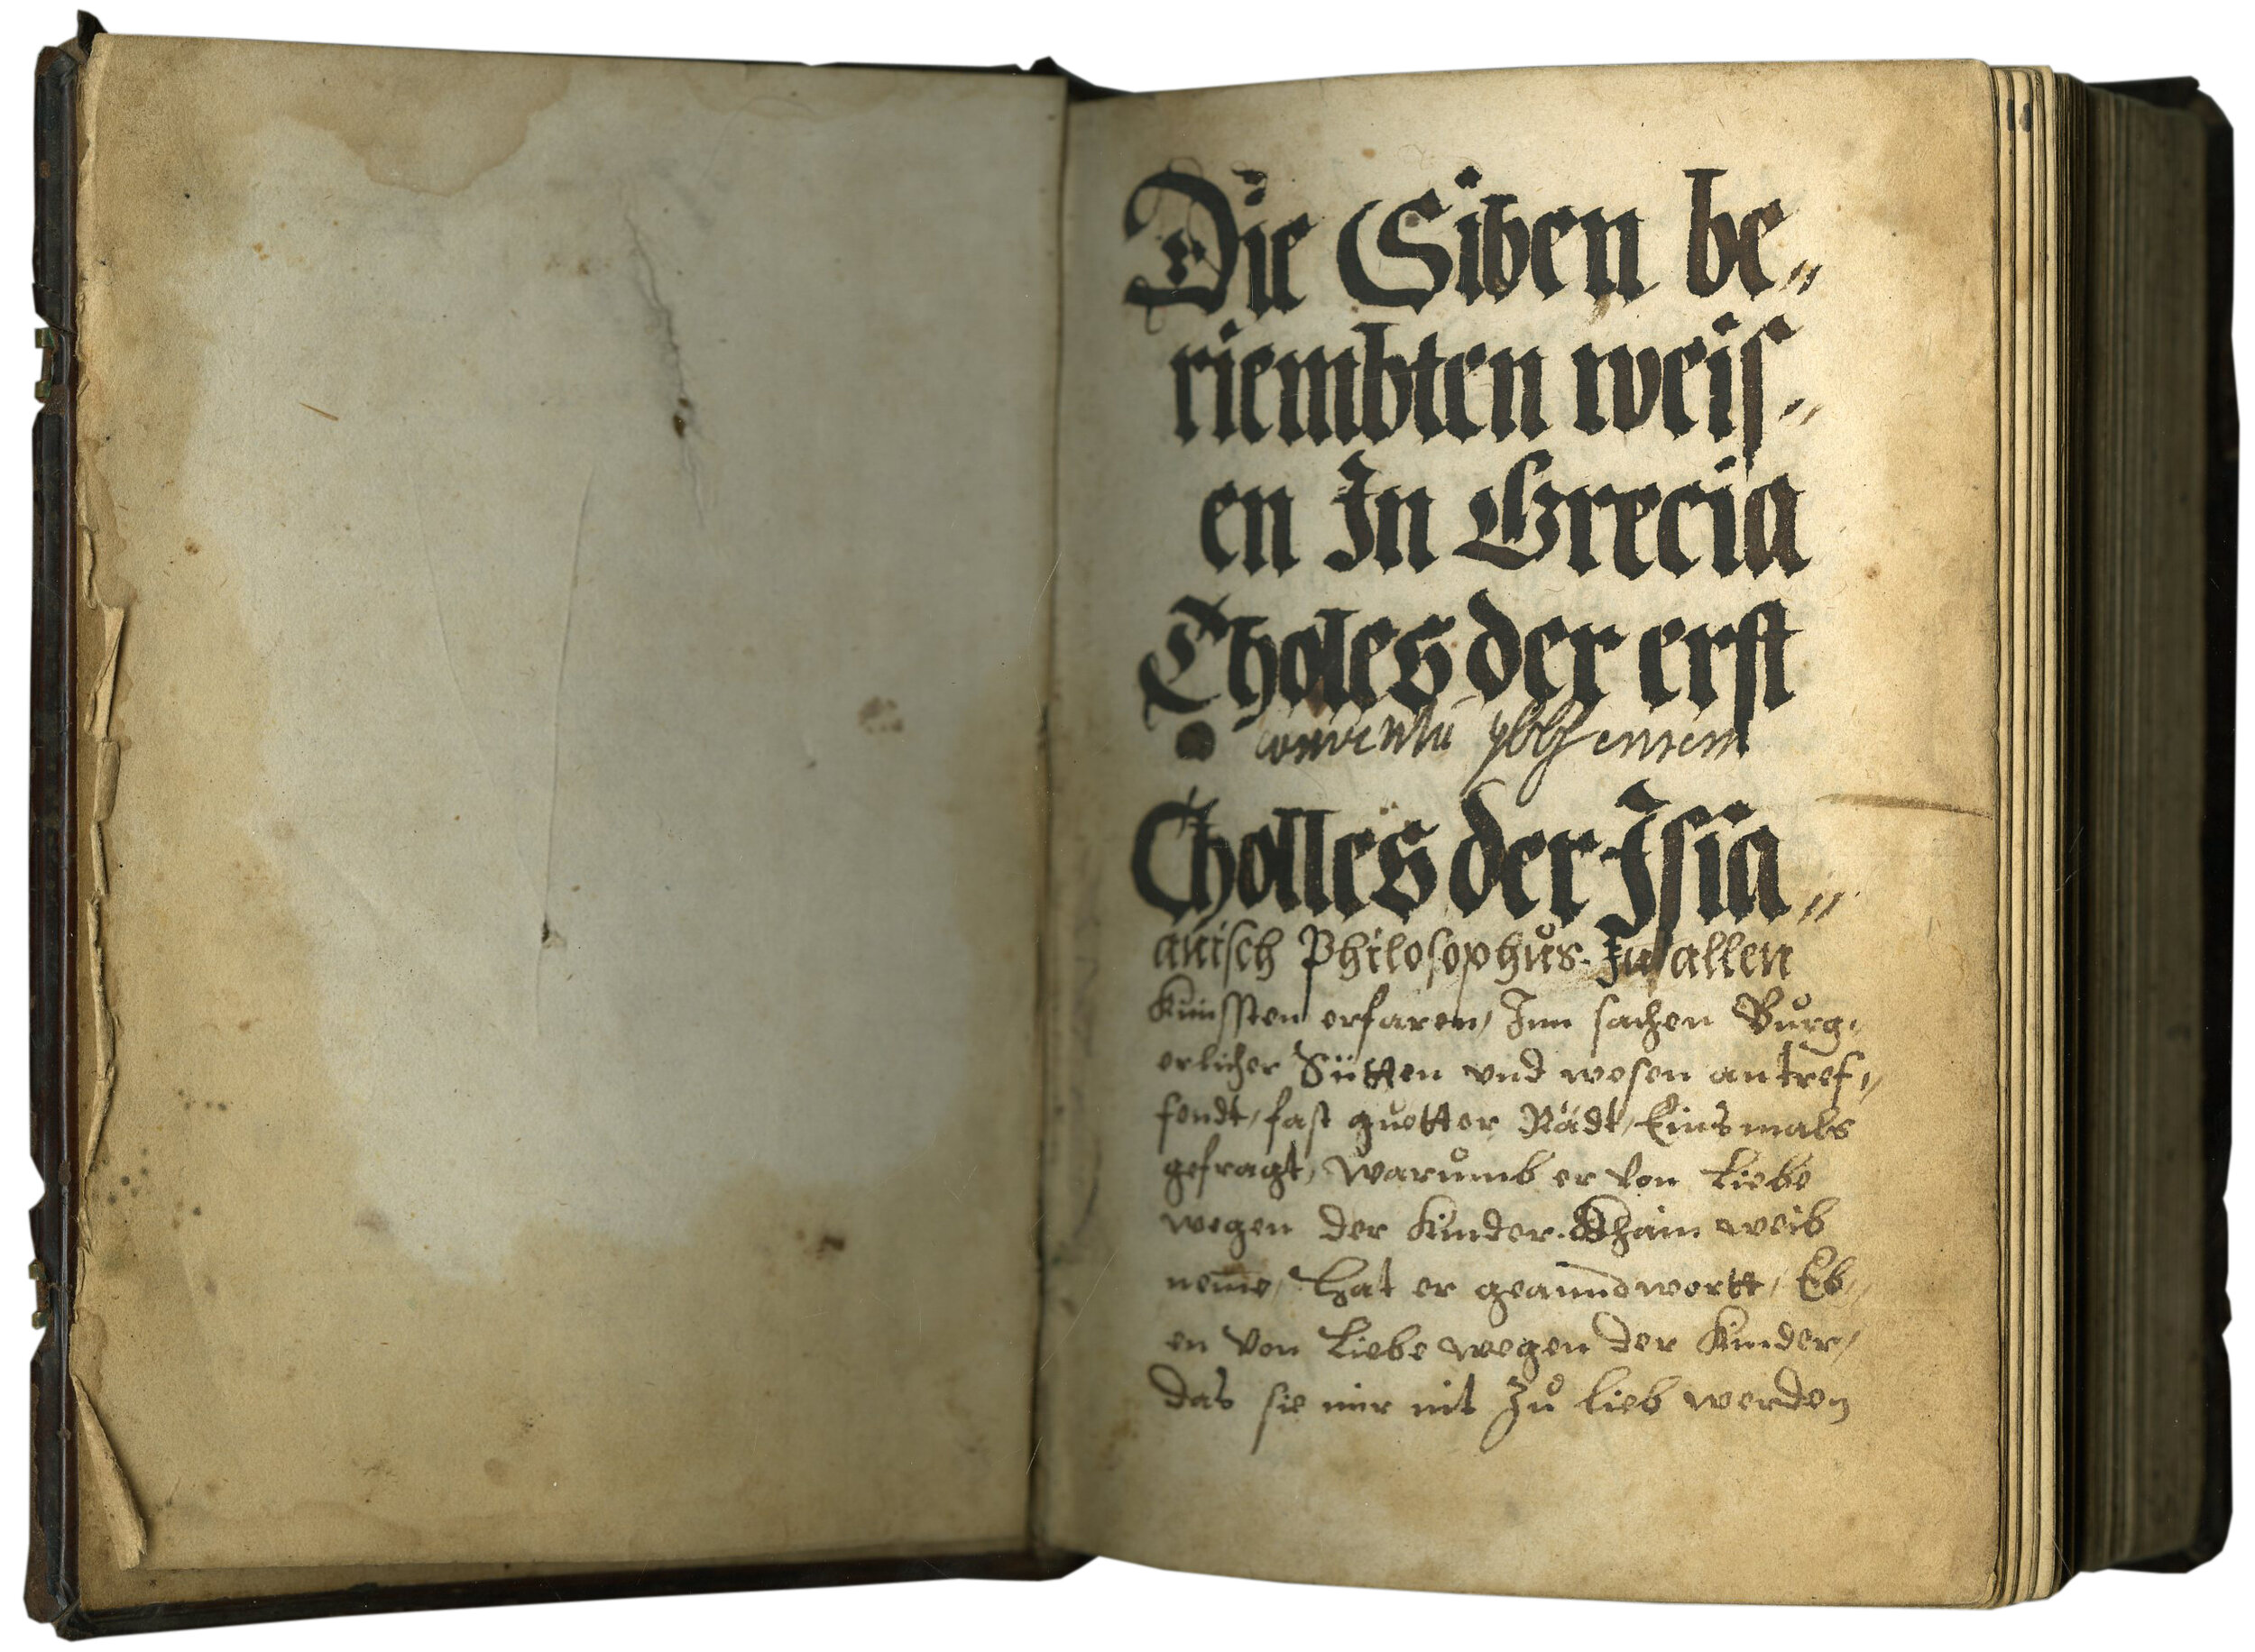 Die Siben be„
riembten weis„
en Jn Grecia
Tholes der erst
Tholles der Jsia„
anisch Philosophůs. Jn allen
Künssten erfaren, Jnn sachen Bůrg„
erlicher Sütten vnd wesen antref„
fendt, fast guetter Rädt, Eins mals
gefragt, warůmb er von Liebe
wegen der Kinder. Khain weib
neme, Hat er geanndwortt, Eb„
en von Liebe wegen der Kinder,
das sie mir nit Zů lieb werden